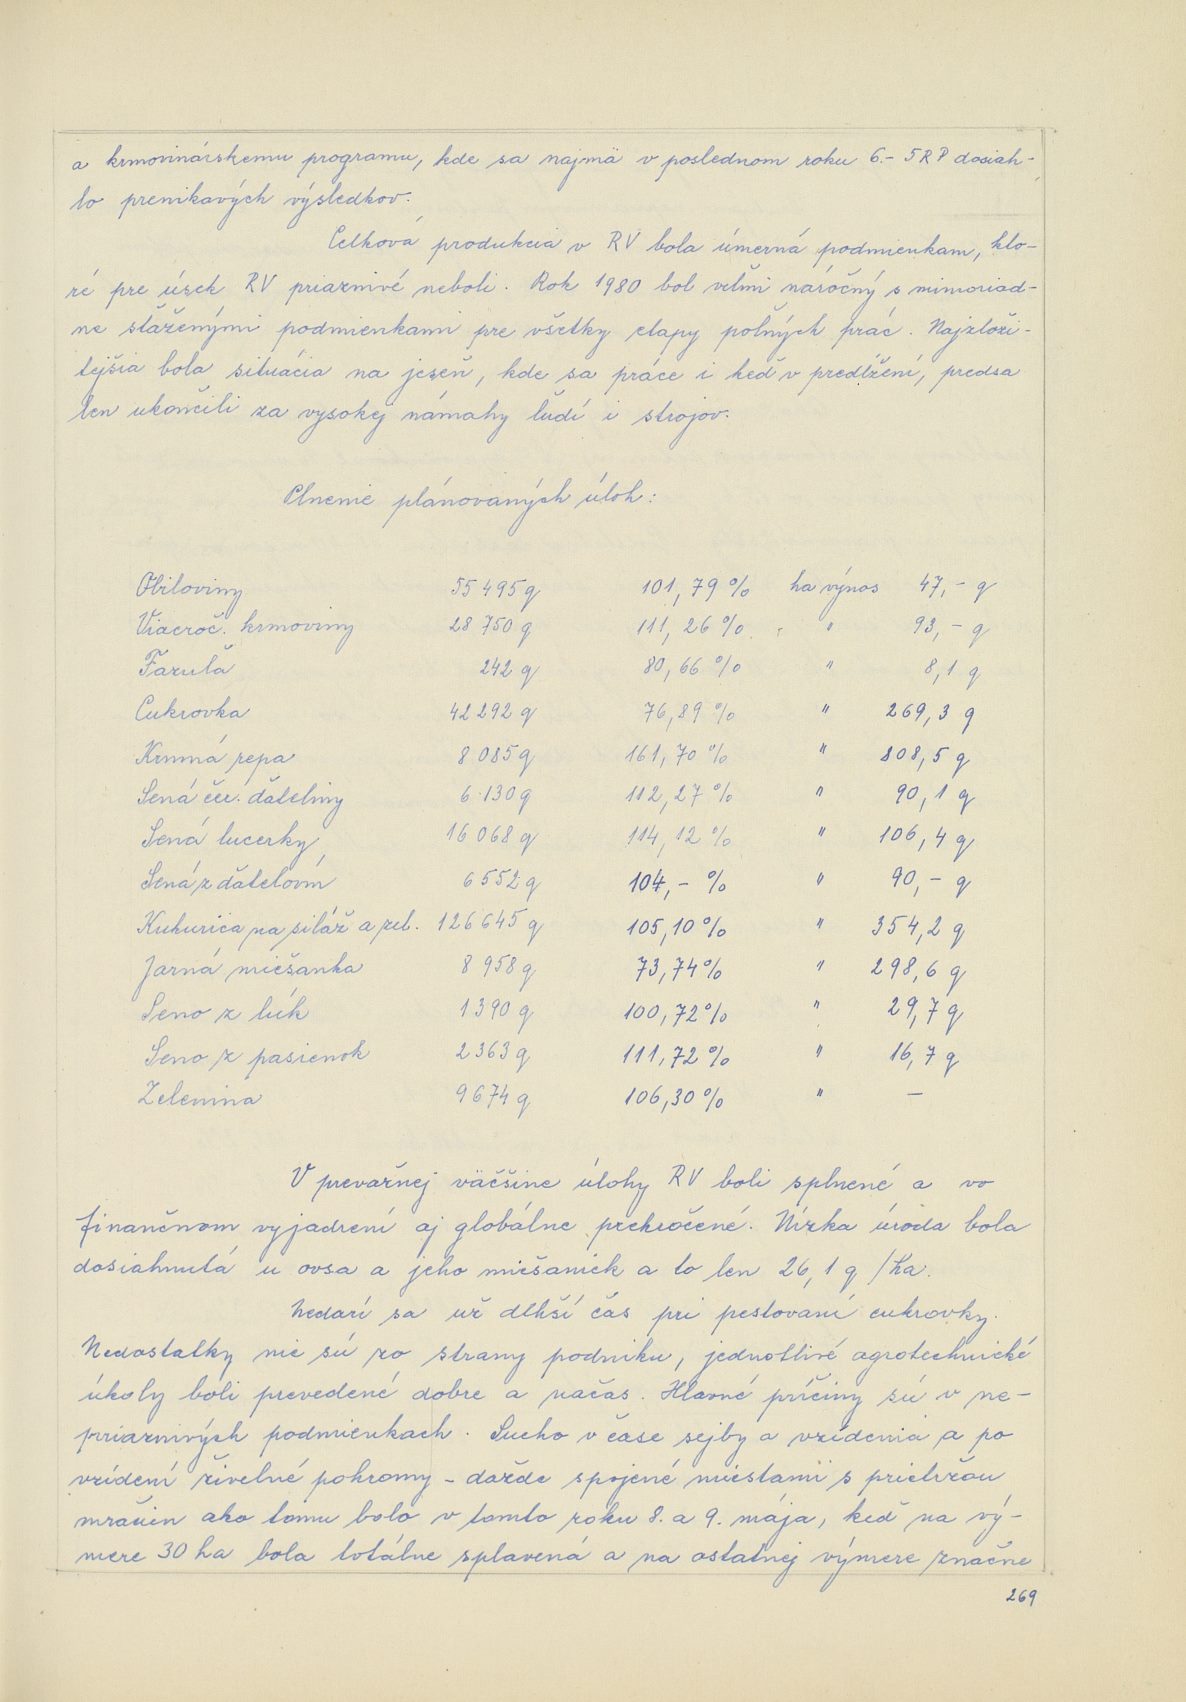 a krmovinárskemu programu, kde sa najmä v poslednom roku 6.- 5RP dosiah-
lo prenikavých výsledkov.
Celková produkcia v RV bola úmerná podmienkam, kto-
ré pre úsek RV priaznivé neboli. Rok 1980 bol veľmi náročný s mimoriad-
ne sťaženými podmienkami pre všetky etapy poľných prác. Najzloži-
tejšia bola situácia na jeseň, kde sa práce i keď v predĺžení, predsa
len ukončili za vysokej námahy ľudí i strojov.
Plnenie plánovaných úloh:
Obiloviny 55 495 q 101,79 % ha výnos 47,- q
Viacroč. krmoviny 28 750 q 111,26 % " 93,- q
Fazuľa 242 q 80,66 % " 8,1 q
Cukrovka 42 292 q 76,89 % " 269,3 q
Kŕmna repa 8 085 q 161,70 % " 808,5 q
Sená čer. ďateliny 6 130 q 112,27 % " 90,1 q
Sená lucerky 16 068 q 114,12 % " 106,4 q
Sená z ďatelovín 6 552 q 104,- % " 90,- q
Kukurica na siláž a zel. 126 645 q 105,10 % " 354,2 q
Jarná miešanka 8 958 q 73,74 % " 298,6 q
Seno z lúk 1 390 q 100,72 % " 29,7 q
Seno z pasienok 2 363 q 111,72 % " 16,7 q
Zelenina 9 674 q 106,30 % " -
V prevažnej väčšine úlohy RV boli splnené a vo
finančnom vyjadrení aj globálne prekročené. Nízka úroda bola
dosiahnutá u ovsa a jeho miešaniek a to len 26,1 q /ha.
Nedarí sa už dlhší čas pri pestovaní cukrovky.
Nedostatky nie sú zo strany podniku, jednotlivé agrotechnické
úkoly boli prevedené dobre a načas. Hlavné príčiny sú v ne-
priaznivých podmienkach. Sucho v čase sejby a vzídenia a po
vzídení živelné pohromy - dažde spojené miestami s prietržou
mračien ako tomu bolo v tomto roku 8. a 9. mája, keď na vý-
mere 30 ha bola totálne splavená a na ostatnej výmere značne
269